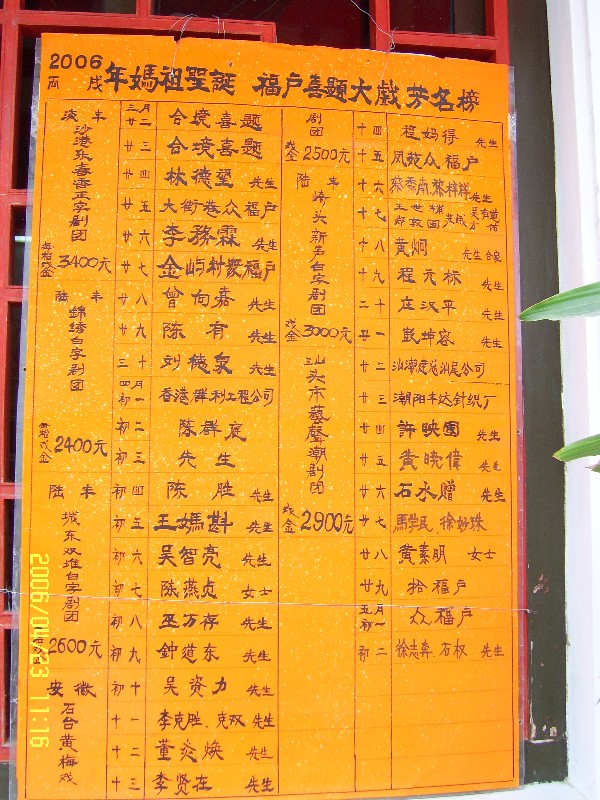 2006丙戌年媽祖聖誕 福户喜題大戲芳名榜
陆丰沙港东喜香正字剧团
每枱戏金3400元
三月廿二 合境喜题
廿三 合境喜题
廿四 林德望 先生
廿五 大街巷众福户
廿六 李務霖 先生
廿七 金屿村聚福户
陆丰錦綉白字剧团
每枱戏金2400元
廿八 曾向嘉 先生
廿九 陈有 先生
三十 刘德泉 先生
四月初一 香港群利工程公司
初二 陈群庭
初三 先生
陆丰城东双堆白字剧团
2600元
初四 陈胜 先生
初五 王媽斟 先生
初六 吴智亮 先生
初七 陈燕贞 女士
初八 巫万存 先生
初九 鈡道东 先生
安徽石台黄梅戏剧团
戏金2500元
初十 吴资力 先生
十一 李克胜 克双 先生
十二 董炎焕 先生
十三 李贤在 先生
十四 程妈得 先生
十五 凤苑众福户
陆丰崎头新名白字剧团
戏金3000元
十六 蔡秀南 蔡梓祥 先生
十七
十八 黄炯 先生合家
十九 程元标 先生
二十 庄汉平 先生
廿一 彭坤容 先生
汕头市藝聲潮剧团
戏金2900元
廿二 汕潮庭总汕尾公司
廿三 潮阳丰达针织厂
廿四 許映園 先生
廿五 黄晓偉 先生
廿六 石水赠 先生
廿七 馬学民 徐妙珠
廿八 黄素明 女士
廿九 拾福户
五月初一 众福户
初二 徐志奔 石权 先生
2006/04/23 11:16